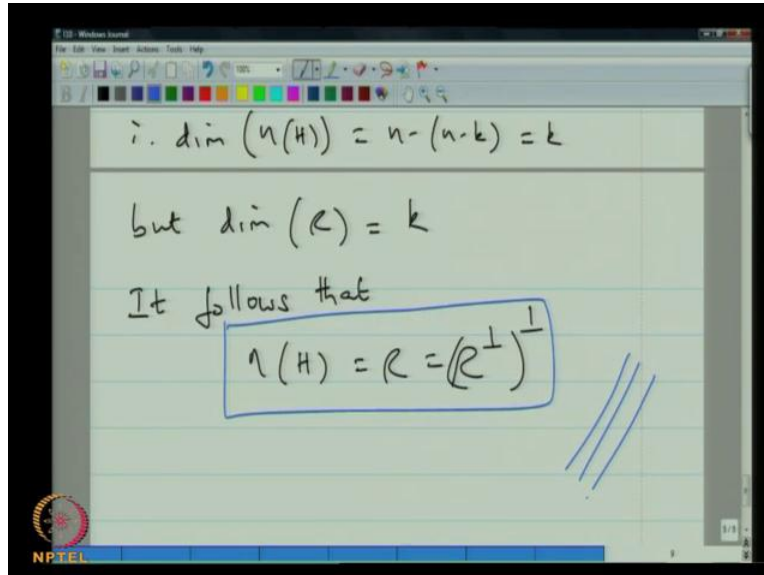 L10 - Windows Journal
File Edit View Insert Actions Tools Help
100%
B I
i. dim (η(H)) = n-(n-k) = k
but dim (C) = k
It follows that
η(H) = C = (C^⊥)^⊥
NPTEL